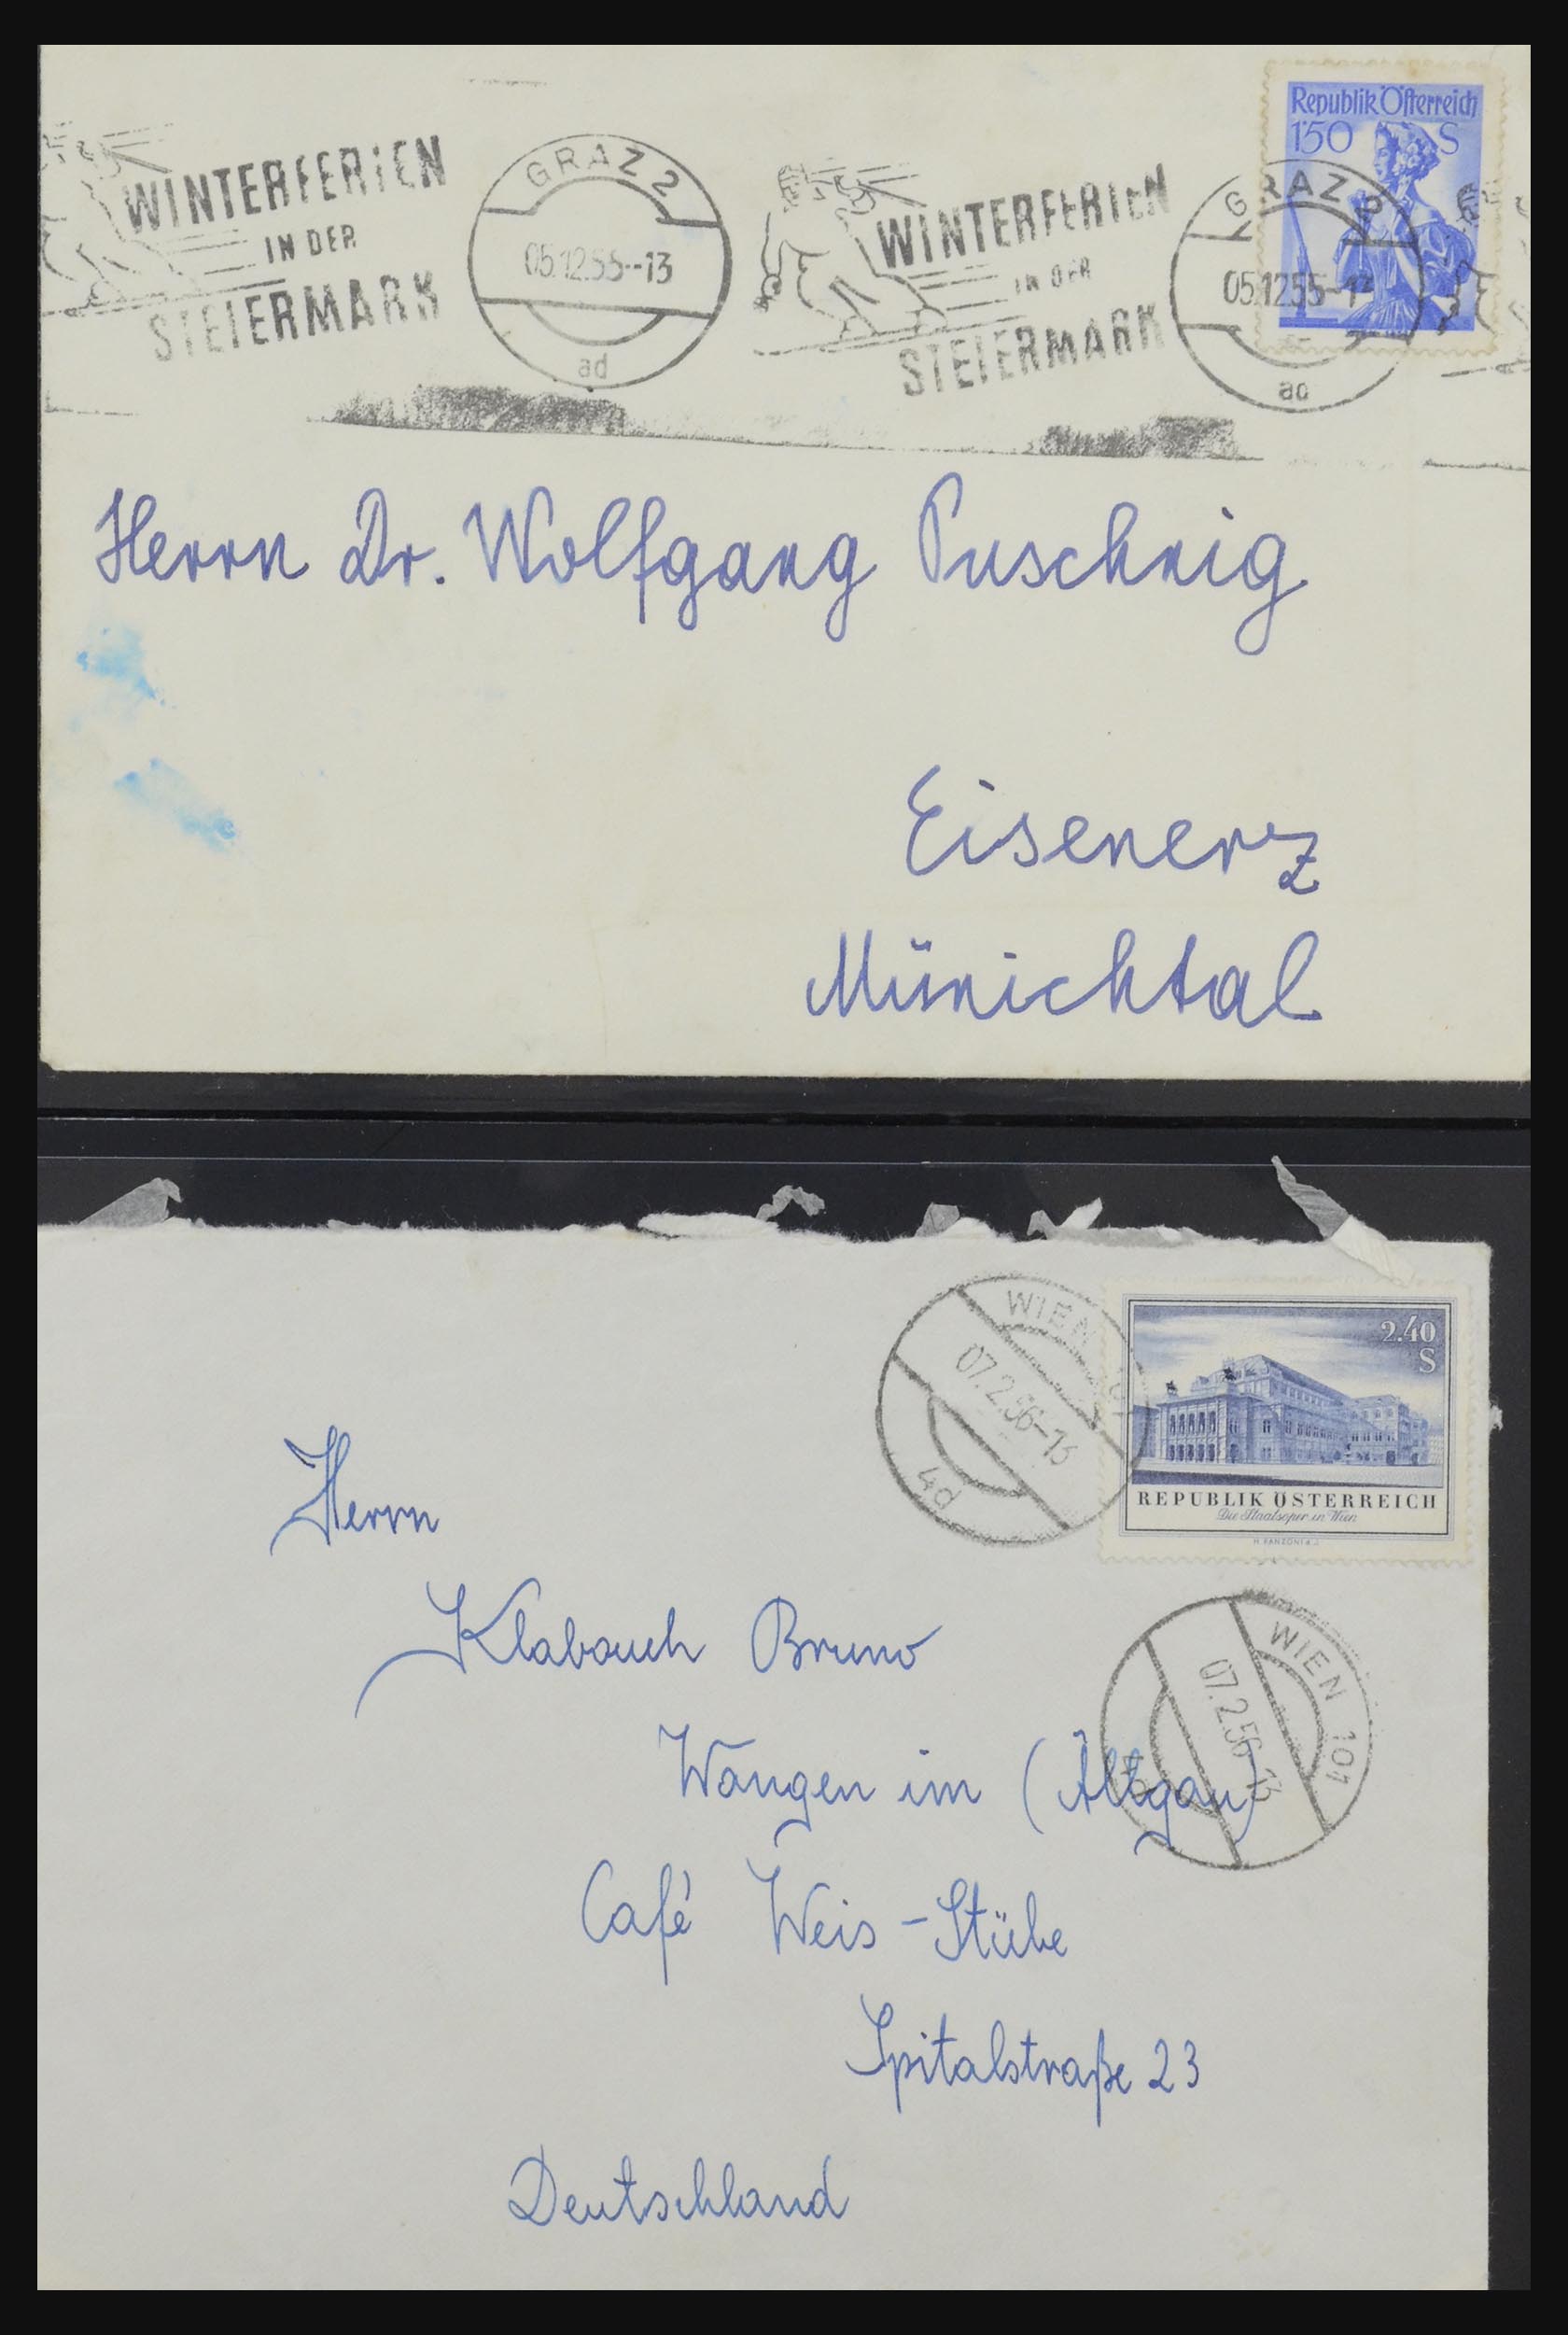 WINTERFERIEN
IN DER
STEIERMARK
GRAZ 2
05.12.55--13
ad
WINTERFERIEN
IN DER
STEIERMARK
GRAZ 2
05.12.55-13
ad
Republik Österreich
1'50 S
Herrn Dr. Wolfgang Puschnig
Eisenerz
Münichtal
WIEN
07.2.56-13
4d
2.40
S
REPUBLIK ÖSTERREICH
Die Staatsoper in Wien
Herrn
Klabauch Bruno
WIEN 101
07.2.56-13
Wangen im (Allgau)
Café Weis-Stübe
Spitalstraße 23
Deutschland